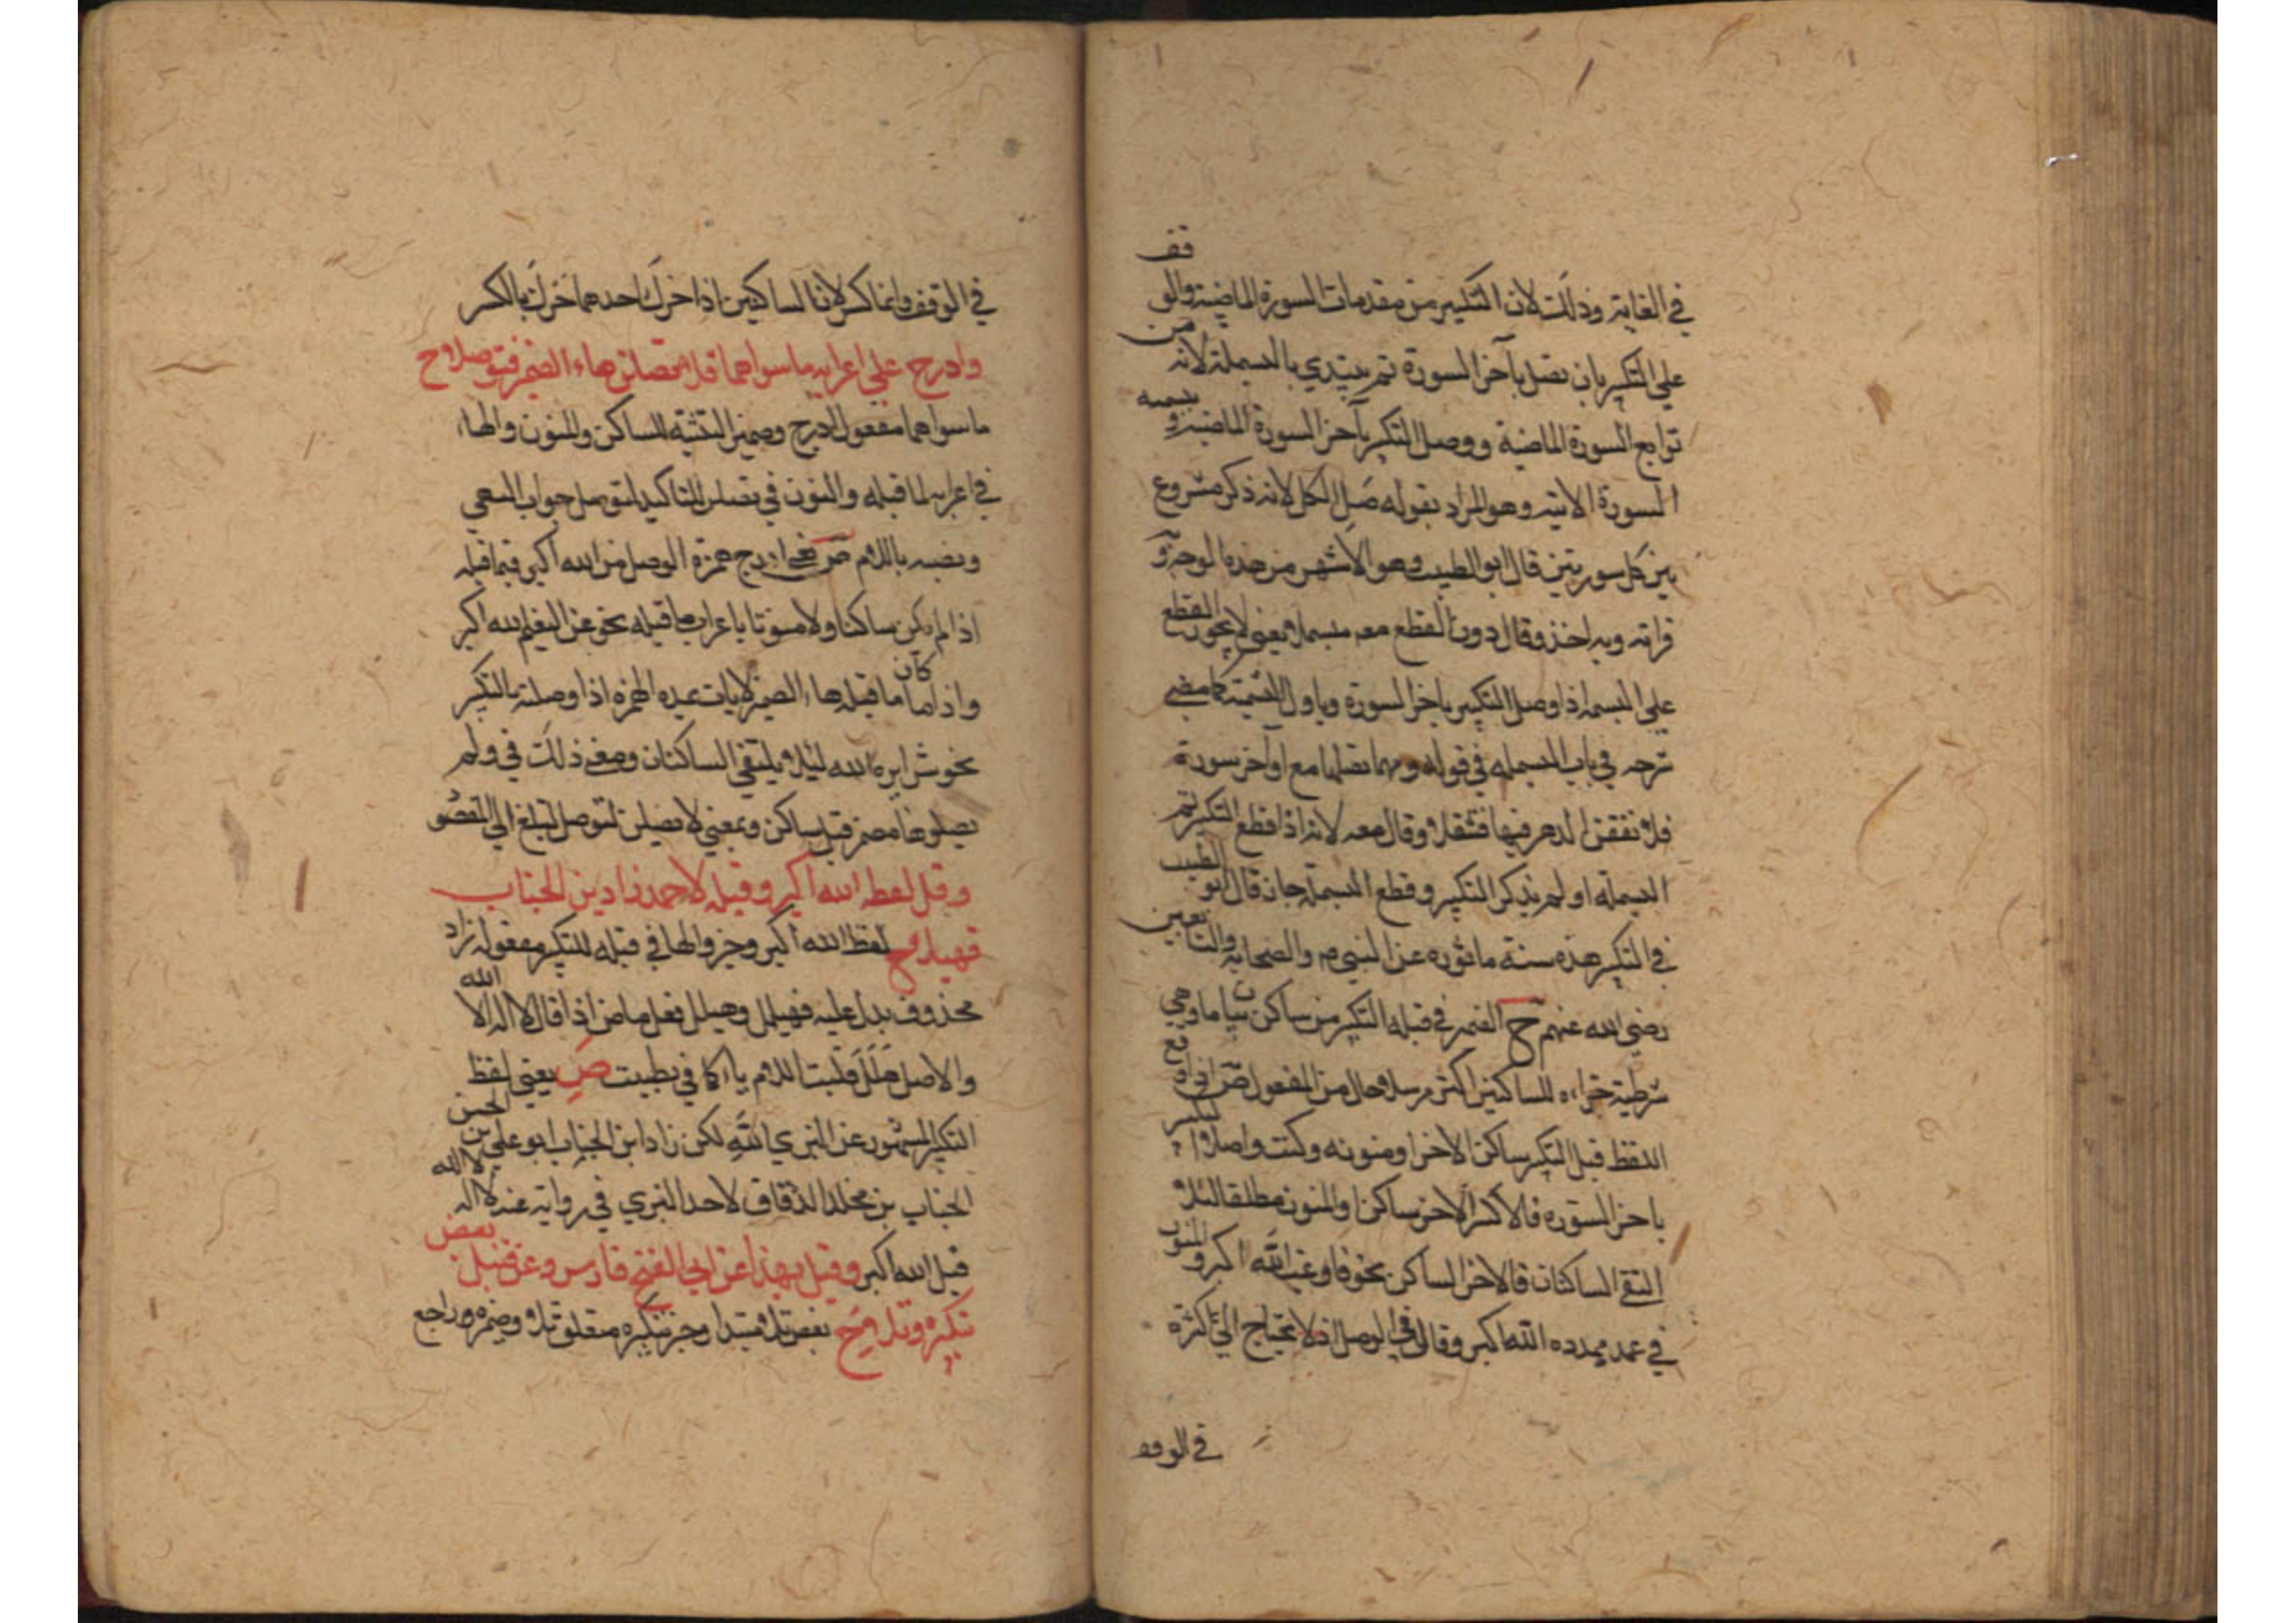 في الغاية وذلك لان التكبير من مقدمات السورة الماضية والوقف
على التكبير بان تصل بآخر السورة ثم يبتدي بالبسملة لانه من
توابع السورة الماضية ووصل التكبير بآخر السورة الماضية وبسمه
السورة الاتية وهو المراد بقوله صل الكل لانه ذكر مشروع
بين كل سورتين قال ابو الطيب وهو الاشهر من هذه الوجه و
قراته وبه اخذ وقال دون القطع معه مبسملا يعني لا يجوز القطع
على البسمله اذا وصل التكبير باخر السورة وباول التسمية كما مضى
شرحه في باب البسمله في قوله ومهما تصلها مع اوآخر سورة
فلا تقفن الدهر فيها فتثقلا وقال معه لانه اذا قطع التكبير ثم
البسمله او لم يذكر التكبير وقطع البسملة جاز قال ابو الطيب
في التكبير هذه سنة ماثوره عن النبي م والصحابه والتابعين
رضي الله عنهم ح الضمير في قبله التكبير من ساكن بيان ما وهي
شرطية جزاءه للساكنين اكسر مرسلا حال من المفعول ص اذا وقع
اللفظ قبل التكبير ساكن الاخر او منونه وكنت واصلا
باخر السوره فالاكسر الاخر ساكن والمنون مطلقا لئلا
التقي الساكنان فالاخر الساكن نحو فارغب الله اكبر والمنون
في عمد ممدده الله اكبر وقال في الوصل اذ لا يحتاج الى كثرة
في الوقف
في الوقف وانما كسر لان الساكنين اذا حرك احدهما حرك بالكسر
وادرج على اعرابه ما سواهما فلا تصلن هاء الضمير فتوصلا ح
ما سواهما مفعول ادرج وضمير التثنية للساكن والمنون والهاء
في اعرابه لما قبله والنون في تصلن للتاكيد لتوصل جواب النهي
ونصبه باللام ص يعني ادرج همزة الوصل من الله اكبر فيما قبله
اذا لم يكن ساكنا ولا منونا باعراب ما قبله نحو عن النعيم الله اكبر
واذا ما كان ما قبله هاء الضمير لايات بعده الهمزه اذا وصلته بالتكبير
نحو شرا يره الله لئلا يلتقي الساكنان ومضى ذلك في ولم
يصلوها مضمر قبل ساكن ومعنى لا تصلن لتوصل لتبلغ الى المقصود
وقل لفظه الله اكبر وقبله لاحمد زاد بن الحباب
فهيللا ح لفظ الله اكبر وخبر والها في قبله للتكبير مفعول زاد
محذوف يدل عليه فهيلل وهيلل فعل ماض اذا قال لا اله الا الله
والاصل هلل قلبت اللام ياء كما في تطبيت ص يعني لفظ
التكبير المشهور عن البزي الله لكن زاد ابن الحباب ابو على الحسن بن
الحباب بن مخلد الدقاق لاحمد البزي في روايته عنه لا اله الا الله
قبل الله اكبر وقيل بهذا عن ابي الفتح فارس وعن قنبل بعض
تكبره وتلا ح بعض تلا مبتدا وخبر بتكبيره متعلق تلا وضميره راجع